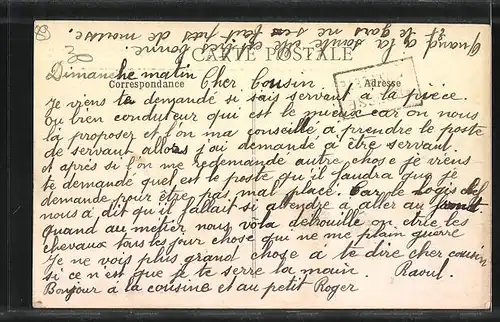 Quand a la santé elle est tres bonne
et le gars ne se fait pas de mousse.
CARTE POSTALE
Correspondance
Adresse
Dimanche matin Cher Cousin.
Je viens te demandé si sais servant a la pièce.
ou bien conduteur qui est le mieux car on nous
la proposer et l'on ma conseillé a prendre le poste
de servant allors j'ai demandé a être servant.
et après si l'on me redemande autre chose je viens
te demandé quel est le poste qu'il faudra que je
demande pour être pas mal placé. Car le logis chef
nous à dit qu'il fallait si attendre a aller au front.
quand au metier nous voila débrouillé on etrie les
chevaux tous les jour chose qui ne me plain guerre
Je ne vois plus grand chose a te dire cher cousin
si ce n'est que je te serre la main. Raoul.
Bonjour à la cousine et au petit Roger